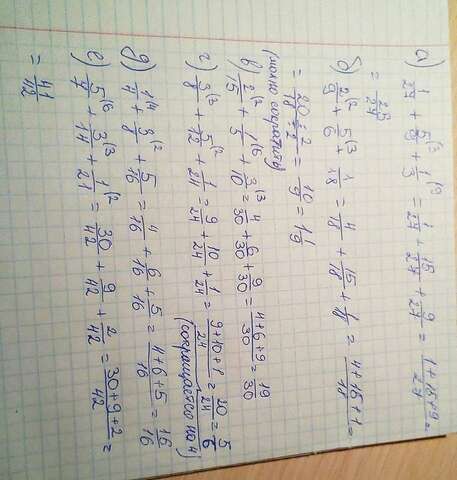 а) 1/24 + 5/8 (3 + 1/3 (9 = 1/24 + 15/24 + 9/24 = 1+15+9/24 =
= 23/24
б) 2/9 (2 + 5/6 (3 + 1/18 = 4/18 + 15/18 + 1/18 = 4+15+1/18 =
= 20:2/18:2 = 10/9 = 1 1/9
(можно сократить)
в) 2/15 (2 + 1/5 (6 + 3/10 (3 = 4/30 + 6/30 + 9/30 = 4+6+9/30 = 19/30
г) 3/8 (3 + 5/12 (2 + 1/24 = 9/24 + 10/24 + 1/24 = 9+10+1/24 = 20/24 = 5/6
(сокращается на 4)
д) 1/4 (4 + 3/8 (2 + 5/16 = 4/16 + 6/16 + 5/16 = 4+6+5/16 = 16/16
е) 5/7 (6 + 3/14 (3 + 1/21 (2 = 30/42 + 9/42 + 2/42 = 30+9+2/42 =
= 41/42